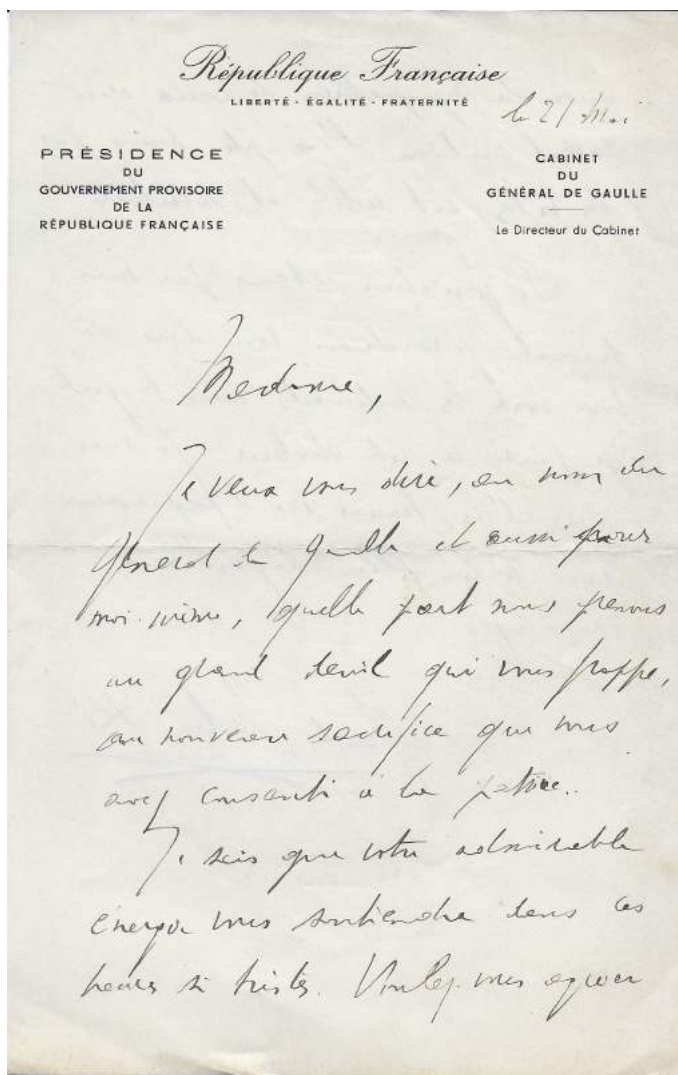 République Française
LIBERTÉ - ÉGALITÉ - FRATERNITÉ
le 21 Mai
PRÉSIDENCE
DU
GOUVERNEMENT PROVISOIRE
DE LA
RÉPUBLIQUE FRANÇAISE
CABINET
DU
GÉNÉRAL DE GAULLE
Le Directeur du Cabinet
Madame,
Je veux vous dire, au nom du
Général de Gaulle et aussi pour
moi-même, quelle part nous prenons
au grand deuil qui vous frappe,
au nouveau sacrifice que vous
avez consenti à la patrie..
Je sais que votre admirable
énergie vous soutiendra dans ces
heures si tristes. Voulez-vous agréer